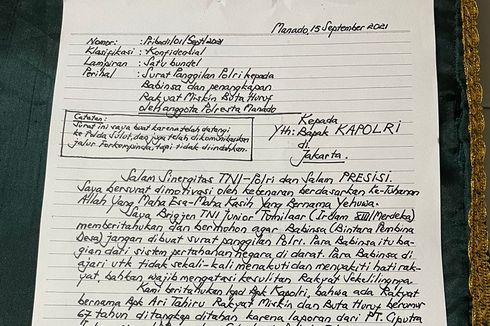 Manado, 15 September 2021
Nomor : Pribadi/01/Sept/2021
Klasifikasi : Konfidensial
Lampiran : Satu bundel
Perihal : Surat Panggilan Polri kepada
Babinsa dan penangkapan
Rakyat Miskin Buta Huruf
oleh anggota Polresta Manado
Catatan:
Surat ini saya buat karena telah datangi
ke Polda Sulut, dan juga telah dikomunikasikan
jalur Forkompinda, tapi tidak diindahkan.
Kepada
Yth: Bapak KAPOLRI
di
Jakarta.
Salam Sinergitas TNI-Polri dan Salam PRESISI.
Saya bersurat dimotivasi oleh kebenaran berdasarkan Ke-Tuhanan
Allah Yang Maha Esa-Maha Kasih Yang Bernama Yehuwa.
Saya Brigjen TNI Junior Tumilaar (Irdam XIII/Merdeka)
memberitahukan dan bermohon agar Babinsa (Bintara Pembina
Desa) jangan dibuat surat panggilan Polri. Para Babinsa itu ba-
gian dari sistem pertahanan negara di darat. Para Babinsa di
ajari utk tidak sekali-kali menakuti dan menyakiti hati rak-
yat, bahkan wajib mengatasi kesulitan Rakyat sekelilingnya.
Kami beritahukan kpd Bpk Kapolri, bahwa ada Rakyat
bernama Bpk Ari Tahiru Rakyat Miskin dan Buta Huruf berumur
67 tahun ditangkap ditahan karena laporan dari PT. Ciputra